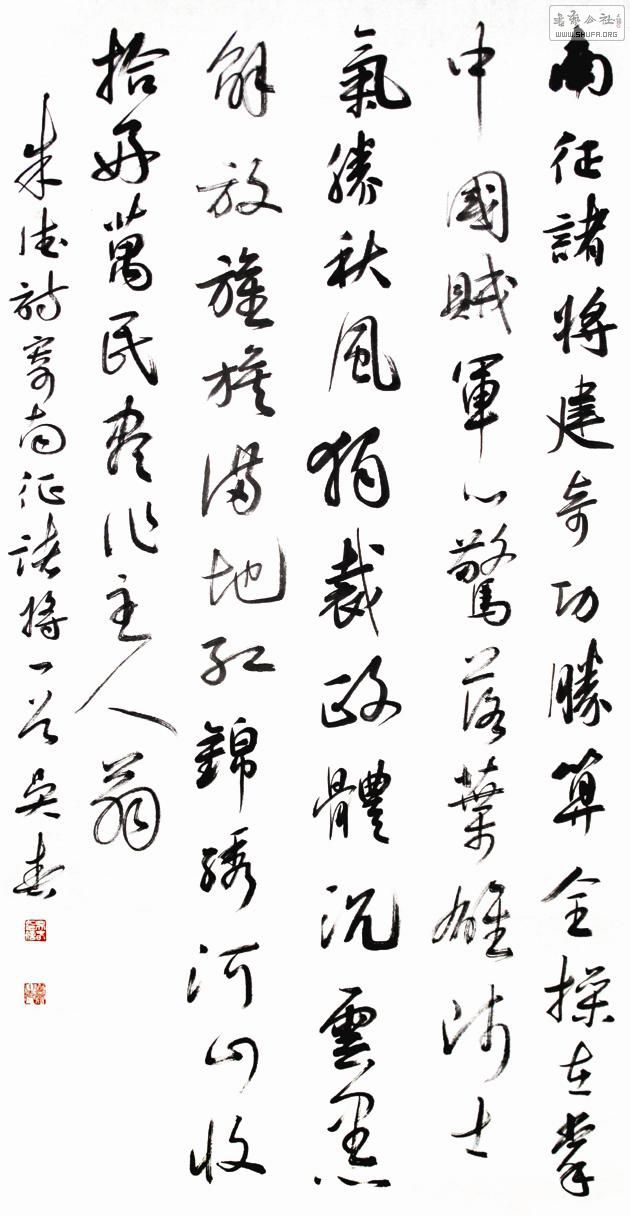 南征諸將建奇功勝算全操在掌
中國賊軍心驚落葉雄师士
氣勝秋風独裁政體沉雲黑
解放旌旗满地红錦绣河山收
拾好萬民尽作主人翁
朱德詩寄南征诸將一首吴春
WWW.SHUFA.ORG